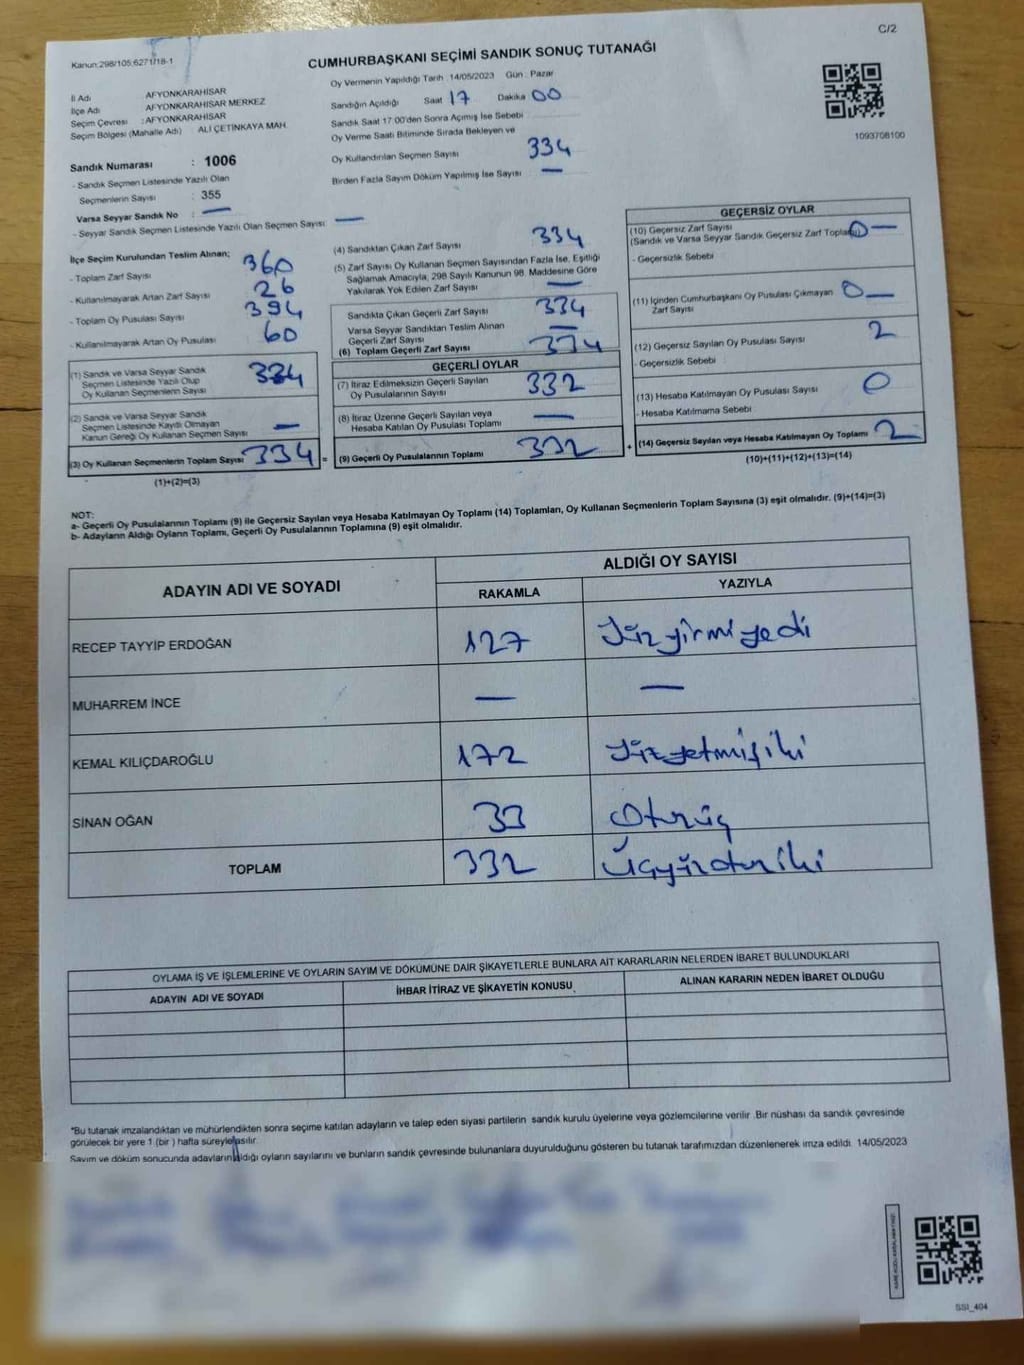 C/2
Kanun:298/105,6271/18-1
CUMHURBAŞKANI SEÇİMİ SANDIK SONUÇ TUTANAĞI
İl Adı AFYONKARAHİSAR
İlçe Adı AFYONKARAHİSAR MERKEZ
Seçim Çevresi : AFYONKARAHİSAR
Seçim Bölgesi (Mahalle Adı) ALİ ÇETİNKAYA MAH.
Oy Vermenin Yapıldığı Tarih : 14/05/2023 Gün : Pazar
Sandığın Açıldığı Saat 17 Dakika 00
Sandık Saat 17:00'den Sonra Açımış İse Sebebi
Oy Verme Saati Bitiminde Sırada Bekleyen ve
Oy Kullandırılan Seçmen Sayısı 334
Birden Fazla Sayım Döküm Yapılmış İse Sayısı —
1093708100
Sandık Numarası : 1006
- Sandık Seçmen Listesinde Yazılı Olan
Seçmenlerin Sayısı : 355
Varsa Seyyar Sandık No : —
- Seyyar Sandık Seçmen Listesinde Yazılı Olan Seçmen Sayısı —
İlçe Seçim Kurulundan Teslim Alınan;
- Toplam Zarf Sayısı 360
- Kullanılmayarak Artan Zarf Sayısı 26
- Toplam Oy Pusulası Sayısı 394
- Kullanılmayarak Artan Oy Pusulası 60
(1) Sandık ve Varsa Seyyar Sandık
Seçmen Listesinde Yazılı Olup
Oy Kullanan Seçmenlerin Sayısı 334
(2) Sandık ve Varsa Seyyar Sandık
Seçmen Listesinde Kayıtlı Olmayan
Kanun Gereği Oy Kullanan Seçmen Sayısı —
(3) Oy Kullanan Seçmenlerin Toplam Sayısı 334 =
(1)+(2)=(3)
(4) Sandıktan Çıkan Zarf Sayısı 334
(5) Zarf Sayısı Oy Kullanan Seçmen Sayısından Fazla İse, Eşitliği
Sağlamak Amacıyla, 298 Sayılı Kanunun 98. Maddesine Göre
Yakılarak Yok Edilen Zarf Sayısı —
Sandıkta Çıkan Geçerli Zarf Sayısı 334
Varsa Seyyar Sandıktan Teslim Alınan
Geçerli Zarf Sayısı —
(6) Toplam Geçerli Zarf Sayısı 334
GEÇERLİ OYLAR
(7) İtiraz Edilmeksizin Geçerli Sayılan
Oy Pusulalarının Sayısı 332
(8) İtiraz Üzerine Geçerli Sayılan veya
Hesaba Katılan Oy Pusulası Toplamı —
(9) Geçerli Oy Pusulalarının Toplamı 332 +
GEÇERSİZ OYLAR
(10) Geçersiz Zarf Sayısı
(Sandık ve Varsa Seyyar Sandık Geçersiz Zarf Toplamı) 0 —
- Geçersizlik Sebebi
(11) İçinden Cumhurbaşkanı Oy Pusulası Çıkmayan
Zarf Sayısı 0 —
(12) Geçersiz Sayılan Oy Pusulası Sayısı 2
- Geçersizlik Sebebi
(13) Hesaba Katılmayan Oy Pusulası Sayısı 0
- Hesaba Katılmama Sebebi
(14) Geçersiz Sayılan veya Hesaba Katılmayan Oy Toplamı 2
(10)+(11)+(12)+(13)=(14)
NOT:
a- Geçerli Oy Pusulalarının Toplamı (9) ile Geçersiz Sayılan veya Hesaba Katılmayan Oy Toplamı (14) Toplamları, Oy Kullanan Seçmenlerin Toplam Sayısına (3) eşit olmalıdır. (9)+(14)=(3)
b- Adayların Aldığı Oyların Toplamı, Geçerli Oy Pusulalarının Toplamına (9) eşit olmalıdır.
ADAYIN ADI VE SOYADI ALDIĞI OY SAYISI
RAKAMLA YAZIYLA
RECEP TAYYİP ERDOĞAN 127 Yüzyirmiyedi
MUHARREM İNCE — —
KEMAL KILIÇDAROĞLU 172 Yüzyetmişiki
SİNAN OĞAN 33 Otuzüç
TOPLAM 332 Üçyüzotuziki
OYLAMA İŞ VE İŞLEMLERİNE VE OYLARIN SAYIM VE DÖKÜMÜNE DAİR ŞİKAYETLERLE BUNLARA AİT KARARLARIN NELERDEN İBARET BULUNDUKLARI
ADAYIN ADI VE SOYADI İHBAR İTİRAZ VE ŞİKAYETİN KONUSU ALINAN KARARIN NEDEN İBARET OLDUĞU
*Bu tutanak imzalandıktan ve mühürlendikten sonra seçime katılan adayların ve talep eden siyasi partilerin sandık kurulu üyelerine veya gözlemcilerine verilir .Bir nüshası da sandık çevresinde
görülecek bir yere 1 (bir ) hafta süreyle asılır.
Sayım ve döküm sonucunda adayların aldığı oyların sayılarını ve bunların sandık çevresinde bulunanlara duyurulduğunu gösteren bu tutanak tarafımızdan düzenlenerek imza edildi. 14/05/2023
SSI_404